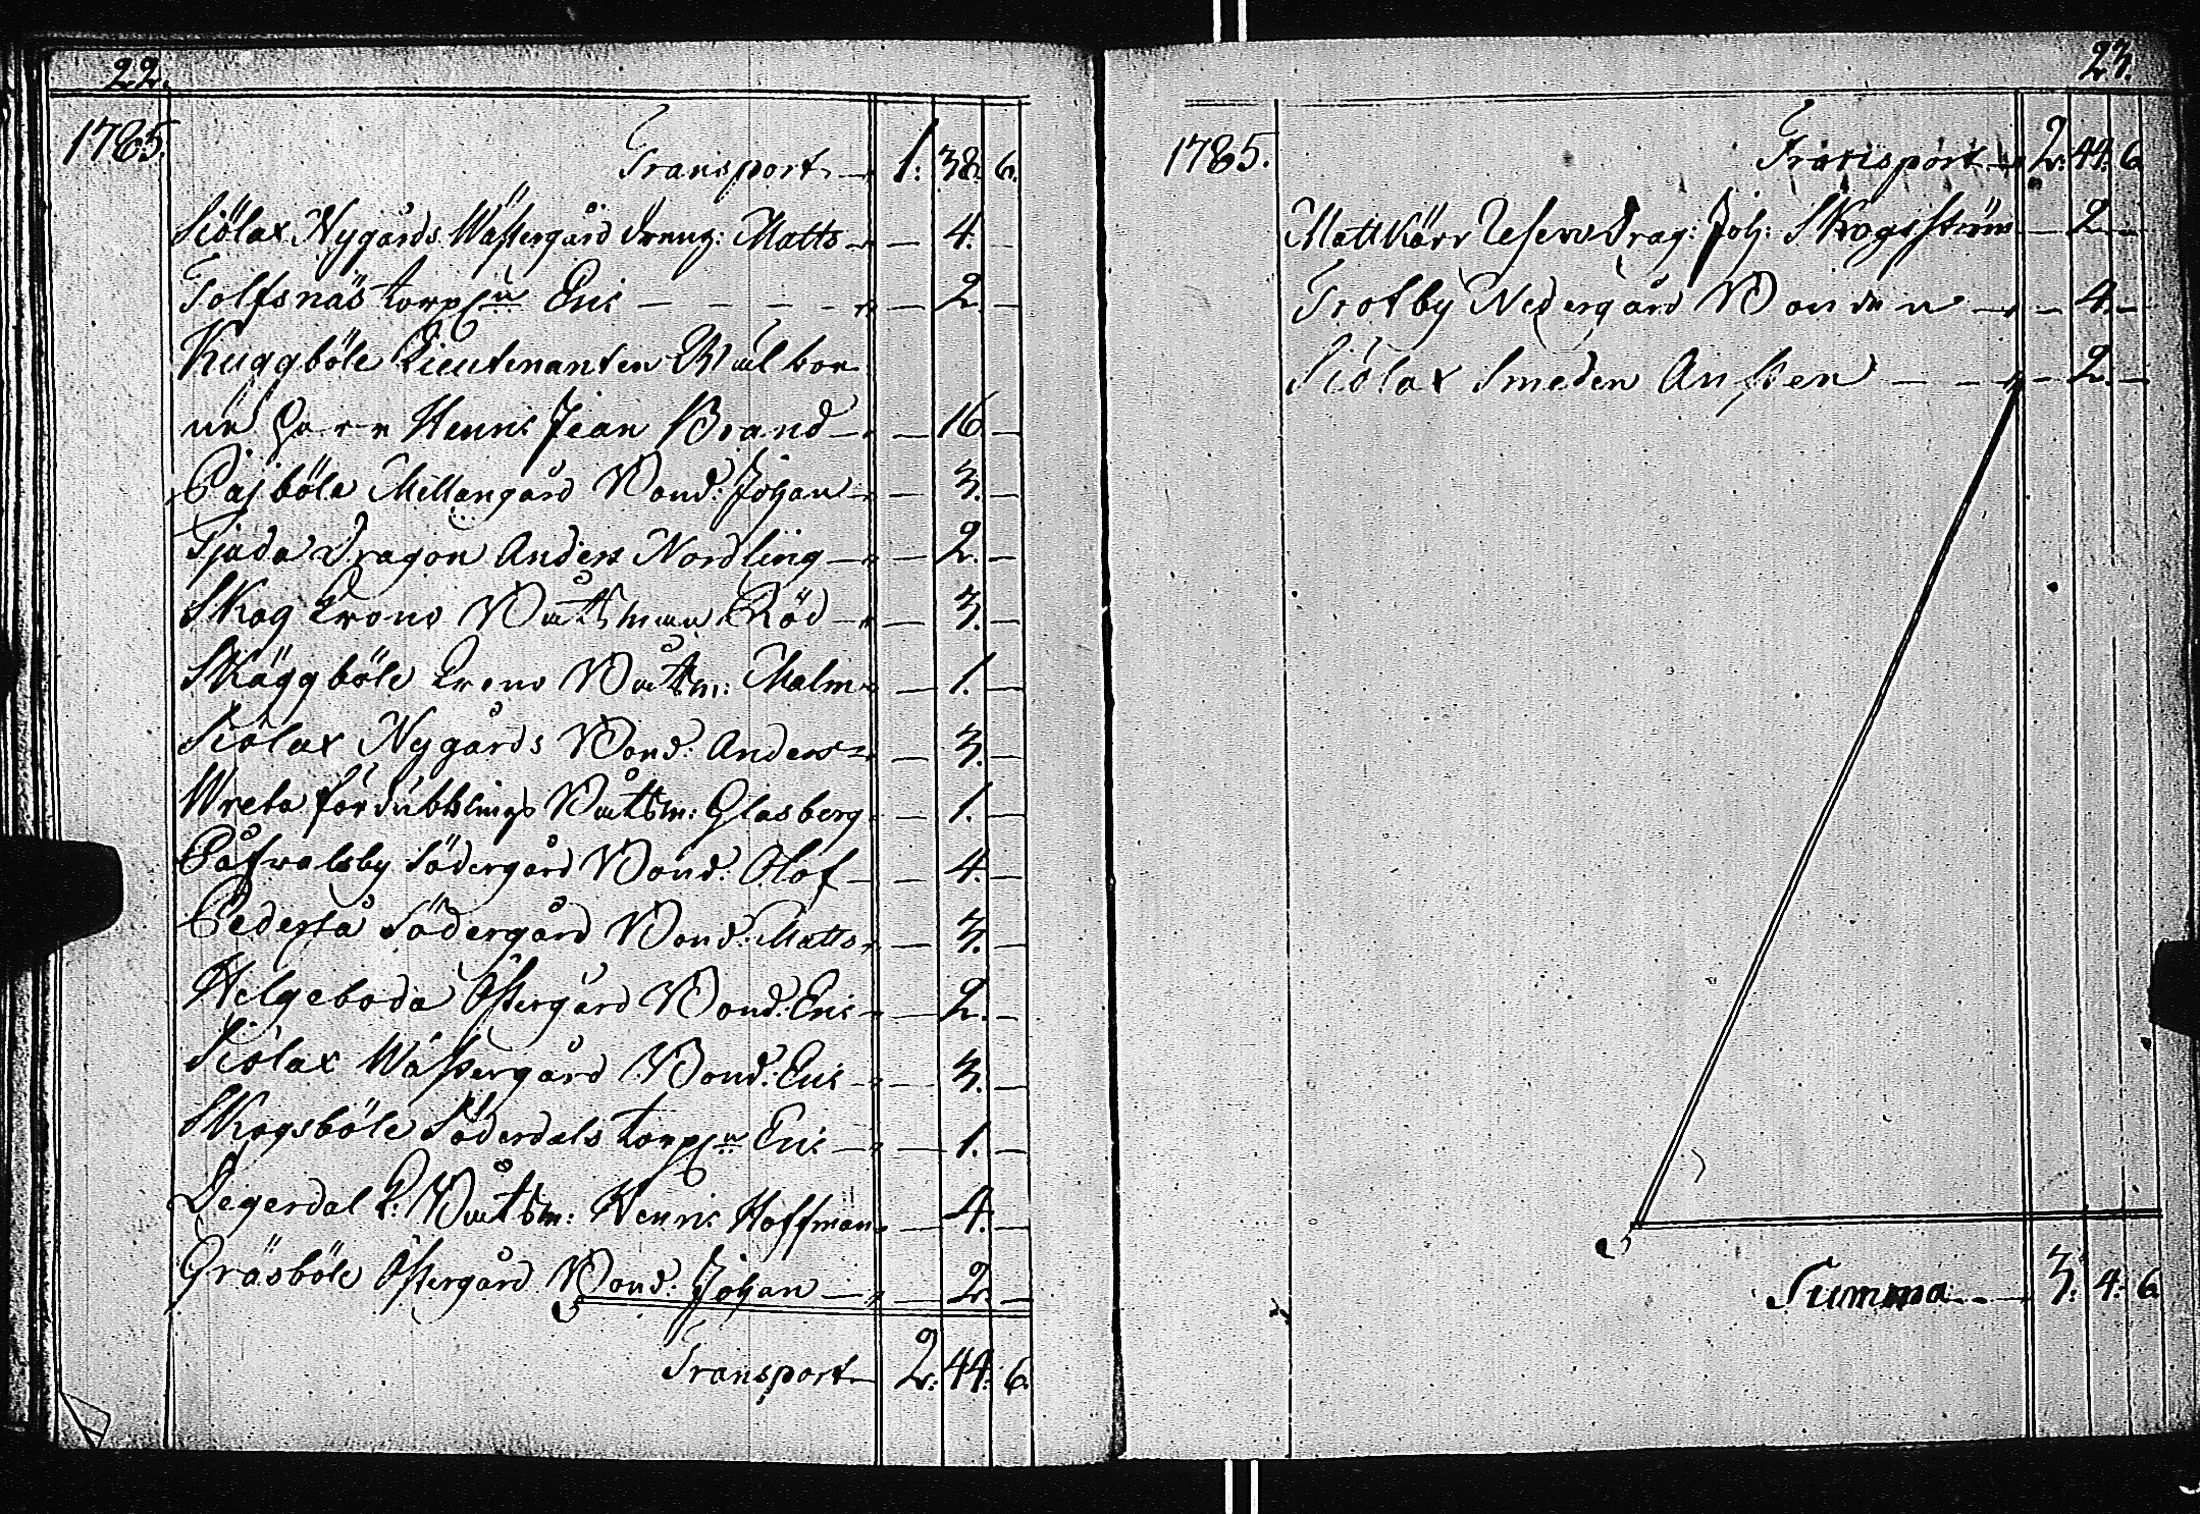 22.
1785.
Transport — 1: 38. 6.
Siölax Nygårds Wästergård Dreng: Matts — — 4. —
Tolfsnäs torp Eric — — — — — 2. —
Kuggböle Lieutenanten Wälbor
ne Herr Henric Jean Brand — — 16. —
Pajböle Mellangård Bond: Johan — — 3. —
Tjuda Dragon Anders Nordling — — 2. —
Skog Crono Båtsman Röd — — 3. —
Skäggböle Crono Båtsm: Malm — 1. —
Siölax Nygårds Bond: Anders — — 3. —
Wreta fördubblings Båtsm: Glasberg — 1. —
Påfwalsby Södergård Bond: Olof — — 4. —
Pederså Södergård Bond: Matts — — 3. —
Helgeboda Östergård Bond: Eric — — 2. —
Siölax Wästergård Bond: Eric — — 3. —
Skogsböle Söderdals torp Eric — — 1. —
Degerdal C: Båtsm: Henric Hoffman — 4. —
Gräsböle Östergård Bond: Johan — — 2. —
Transport — 2: 44: 6.
23.
1785.
Transport — 2: 44: 6
Mattkärr Reserv Drag: Joh: Skogsström — 2. —
Trotby Nedergård Bonden — — 4. —
Siölax Smeden Ansten — — — — 2. —
Summa — — 3: 4: 6